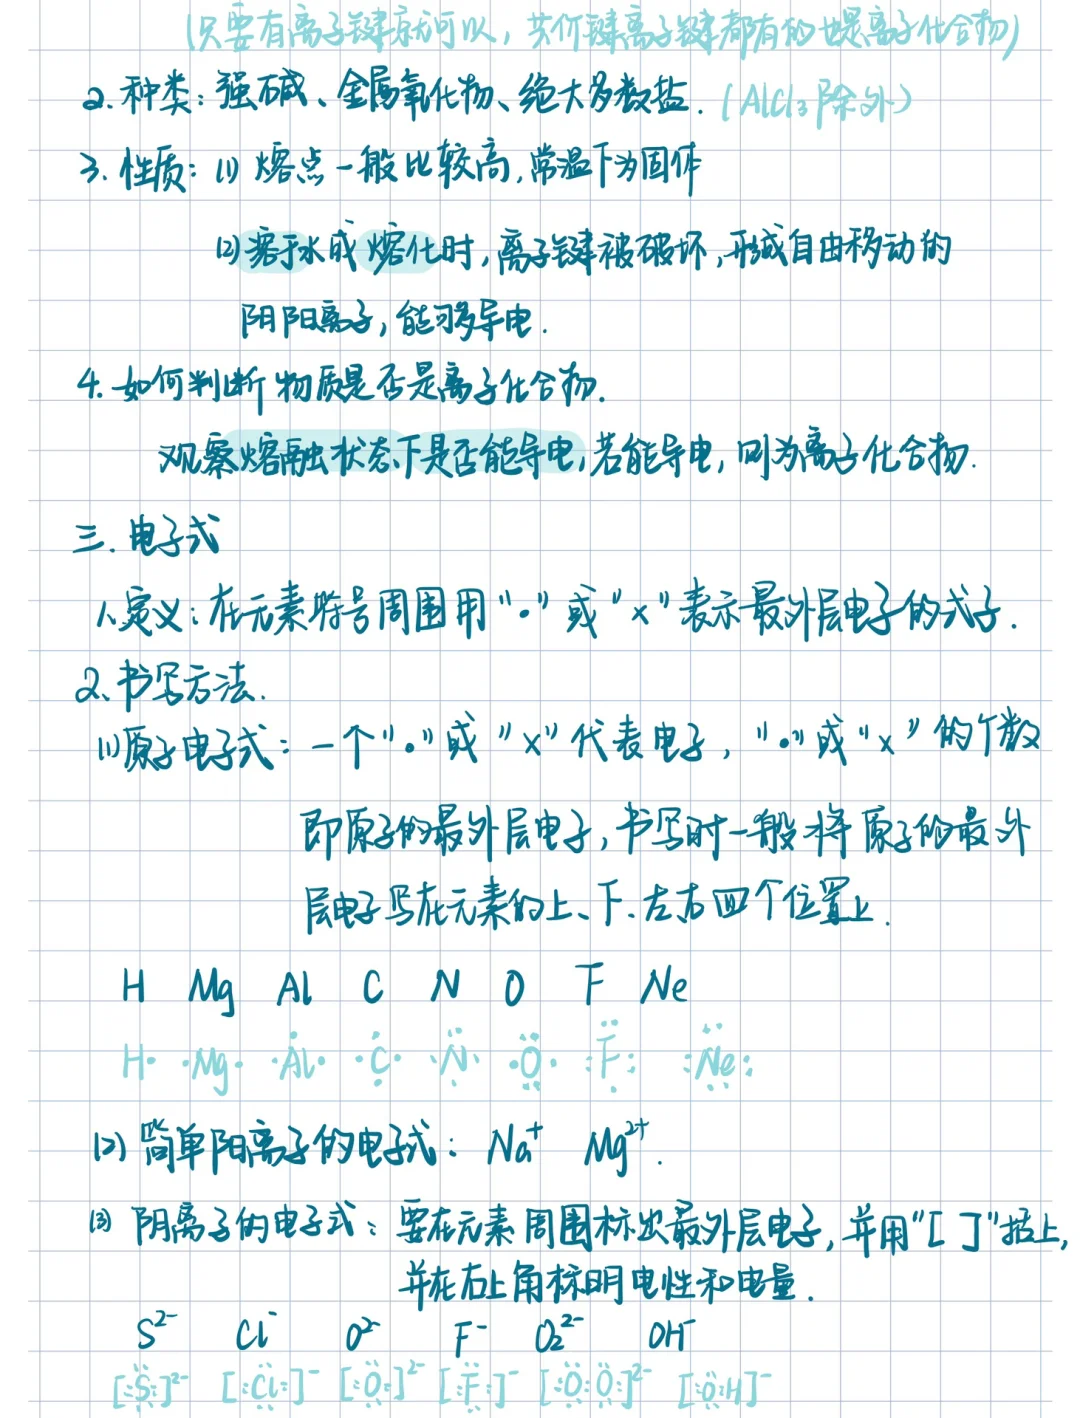 (只要有离子键就可以，共价键离子键都有的也是离子化合物)
2.种类：强碱、金属氧化物、绝大多数盐.(AlCl₃除外)
3.性质：(1)熔点一般比较高,常温下为固体
(2)溶于水或熔化时,离子键被破坏,形成自由移动的
阴阳离子,能够导电.
4.如何判断物质是否是离子化合物.
观察熔融状态下是否能导电,若能导电,则为离子化合物.
三.电子式
1.定义：在元素符号周围用“·”或“×”表示最外层电子的式子.
2、书写方法.
(1)原子电子式：一个“·”或“×”代表电子，“·”或“×”的个数
即原子的最外层电子,书写时一般将原子的最外
层电子写在元素的上、下、左右四个位置上.
H Mg Al C N O F Ne
H· ·Mg· ·Al· ·C· ·N· ·O· :F: :Ne:
(2)简单阳离子的电子式：Na⁺ Mg²⁺.
(3)阴离子的电子式：要在元素周围标出最外层电子,并用“[ ]”括上,
并在右上角标明电性和电量.
S²⁻ Cl⁻ O²⁻ F⁻ O₂²⁻ OH⁻
[:S:]²⁻ [:Cl:]⁻ [:O:]²⁻ [:F:]⁻ [:O:O:]²⁻ [:O:H]⁻